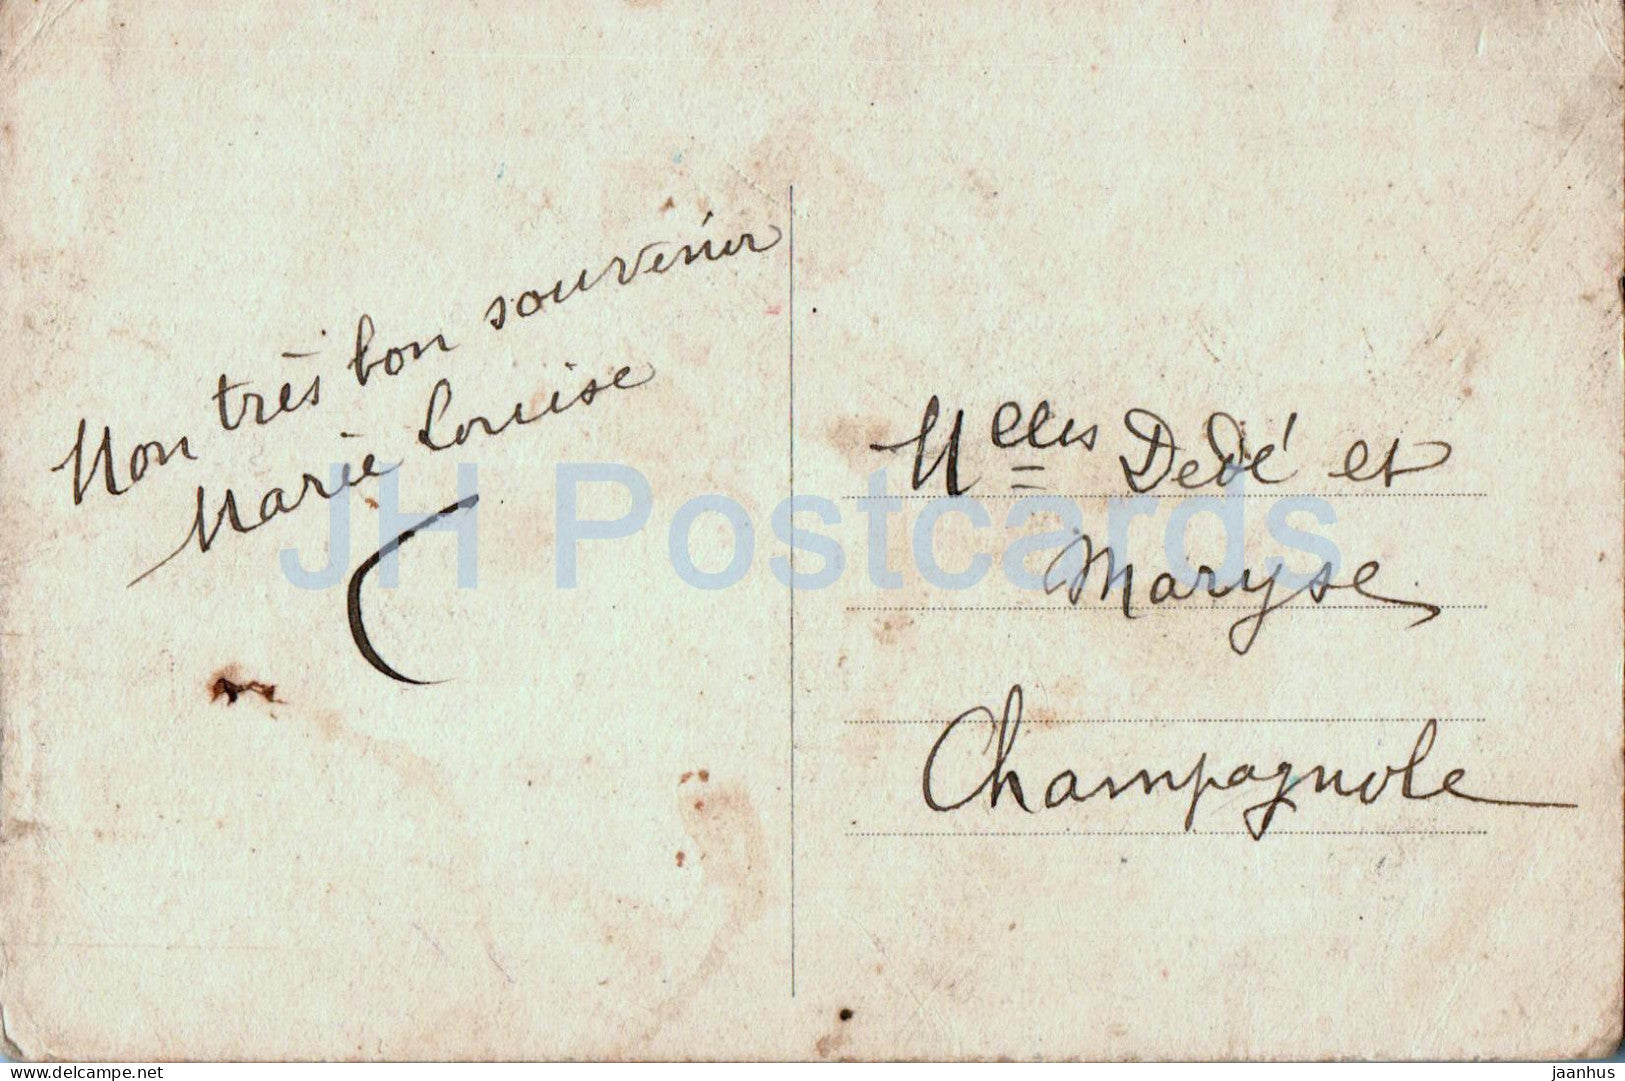 Mon très bon souvenir
Marie Louise
Mlles Dedé et
Maryse
Champagnole
JH Postcards
www.delcampe.net
jaanhus